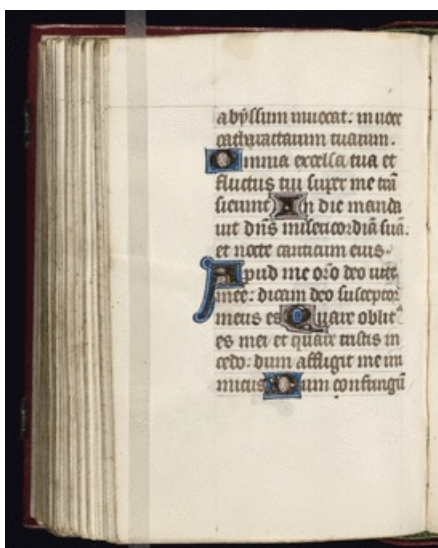 abyssum inuocat: in uoce
catharactarum tuarum.
Omnia excelsa tua et
fluctus tui super me trā
sierunt In die manda
uit dn̄s misericordiā suā:
et nocte canticum eius.
Apud me or̄o deo uite
mee: dicam deo susceptor
meus es Quare oblit
es mei et quare tristis in
cedo: dum affligit me ini
micus Dum confringū